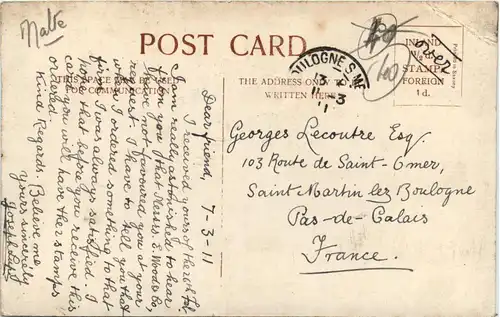 Malte
POST CARD
THIS SPACE MAY BE USED
FOR COMMUNICATION
THE ADDRESS ONLY TO BE
WRITTEN HERE
INLAND
½d.
STAMP
FOREIGN
1d.
BOULOGNE S. MER
13
11 3
11
7-3-11
Dear friend,
I received yours of the
I am really astonished to hear
from you that Messrs. Wood & Co,
have not favoured you at your
request. I have to tell you that
when I ordered something from
them I was always satisfied. I
hope that before you receive this
card you will have the stamps
ordered.
Kind Regards. Believe me
Yours sincerely
Joseph
Georges Lecoutre Esq.
103 Route de Saint-Omer,
Saint Martin lez Boulogne
Pas-de-Calais
France.